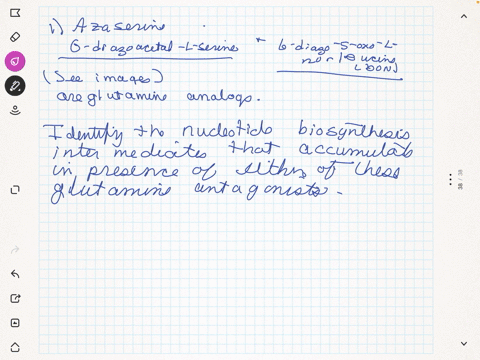 1) Azaserine
O-diazoacetal-L-serine + 6-diazo-5-oxo-L-
norleucine
(DON)
(See images)
are glutamine analogs.
Identify the nucleotide biosynthesis
intermediates that accumulate
in presence of either of these
glutamine antagonists.
38 / 38